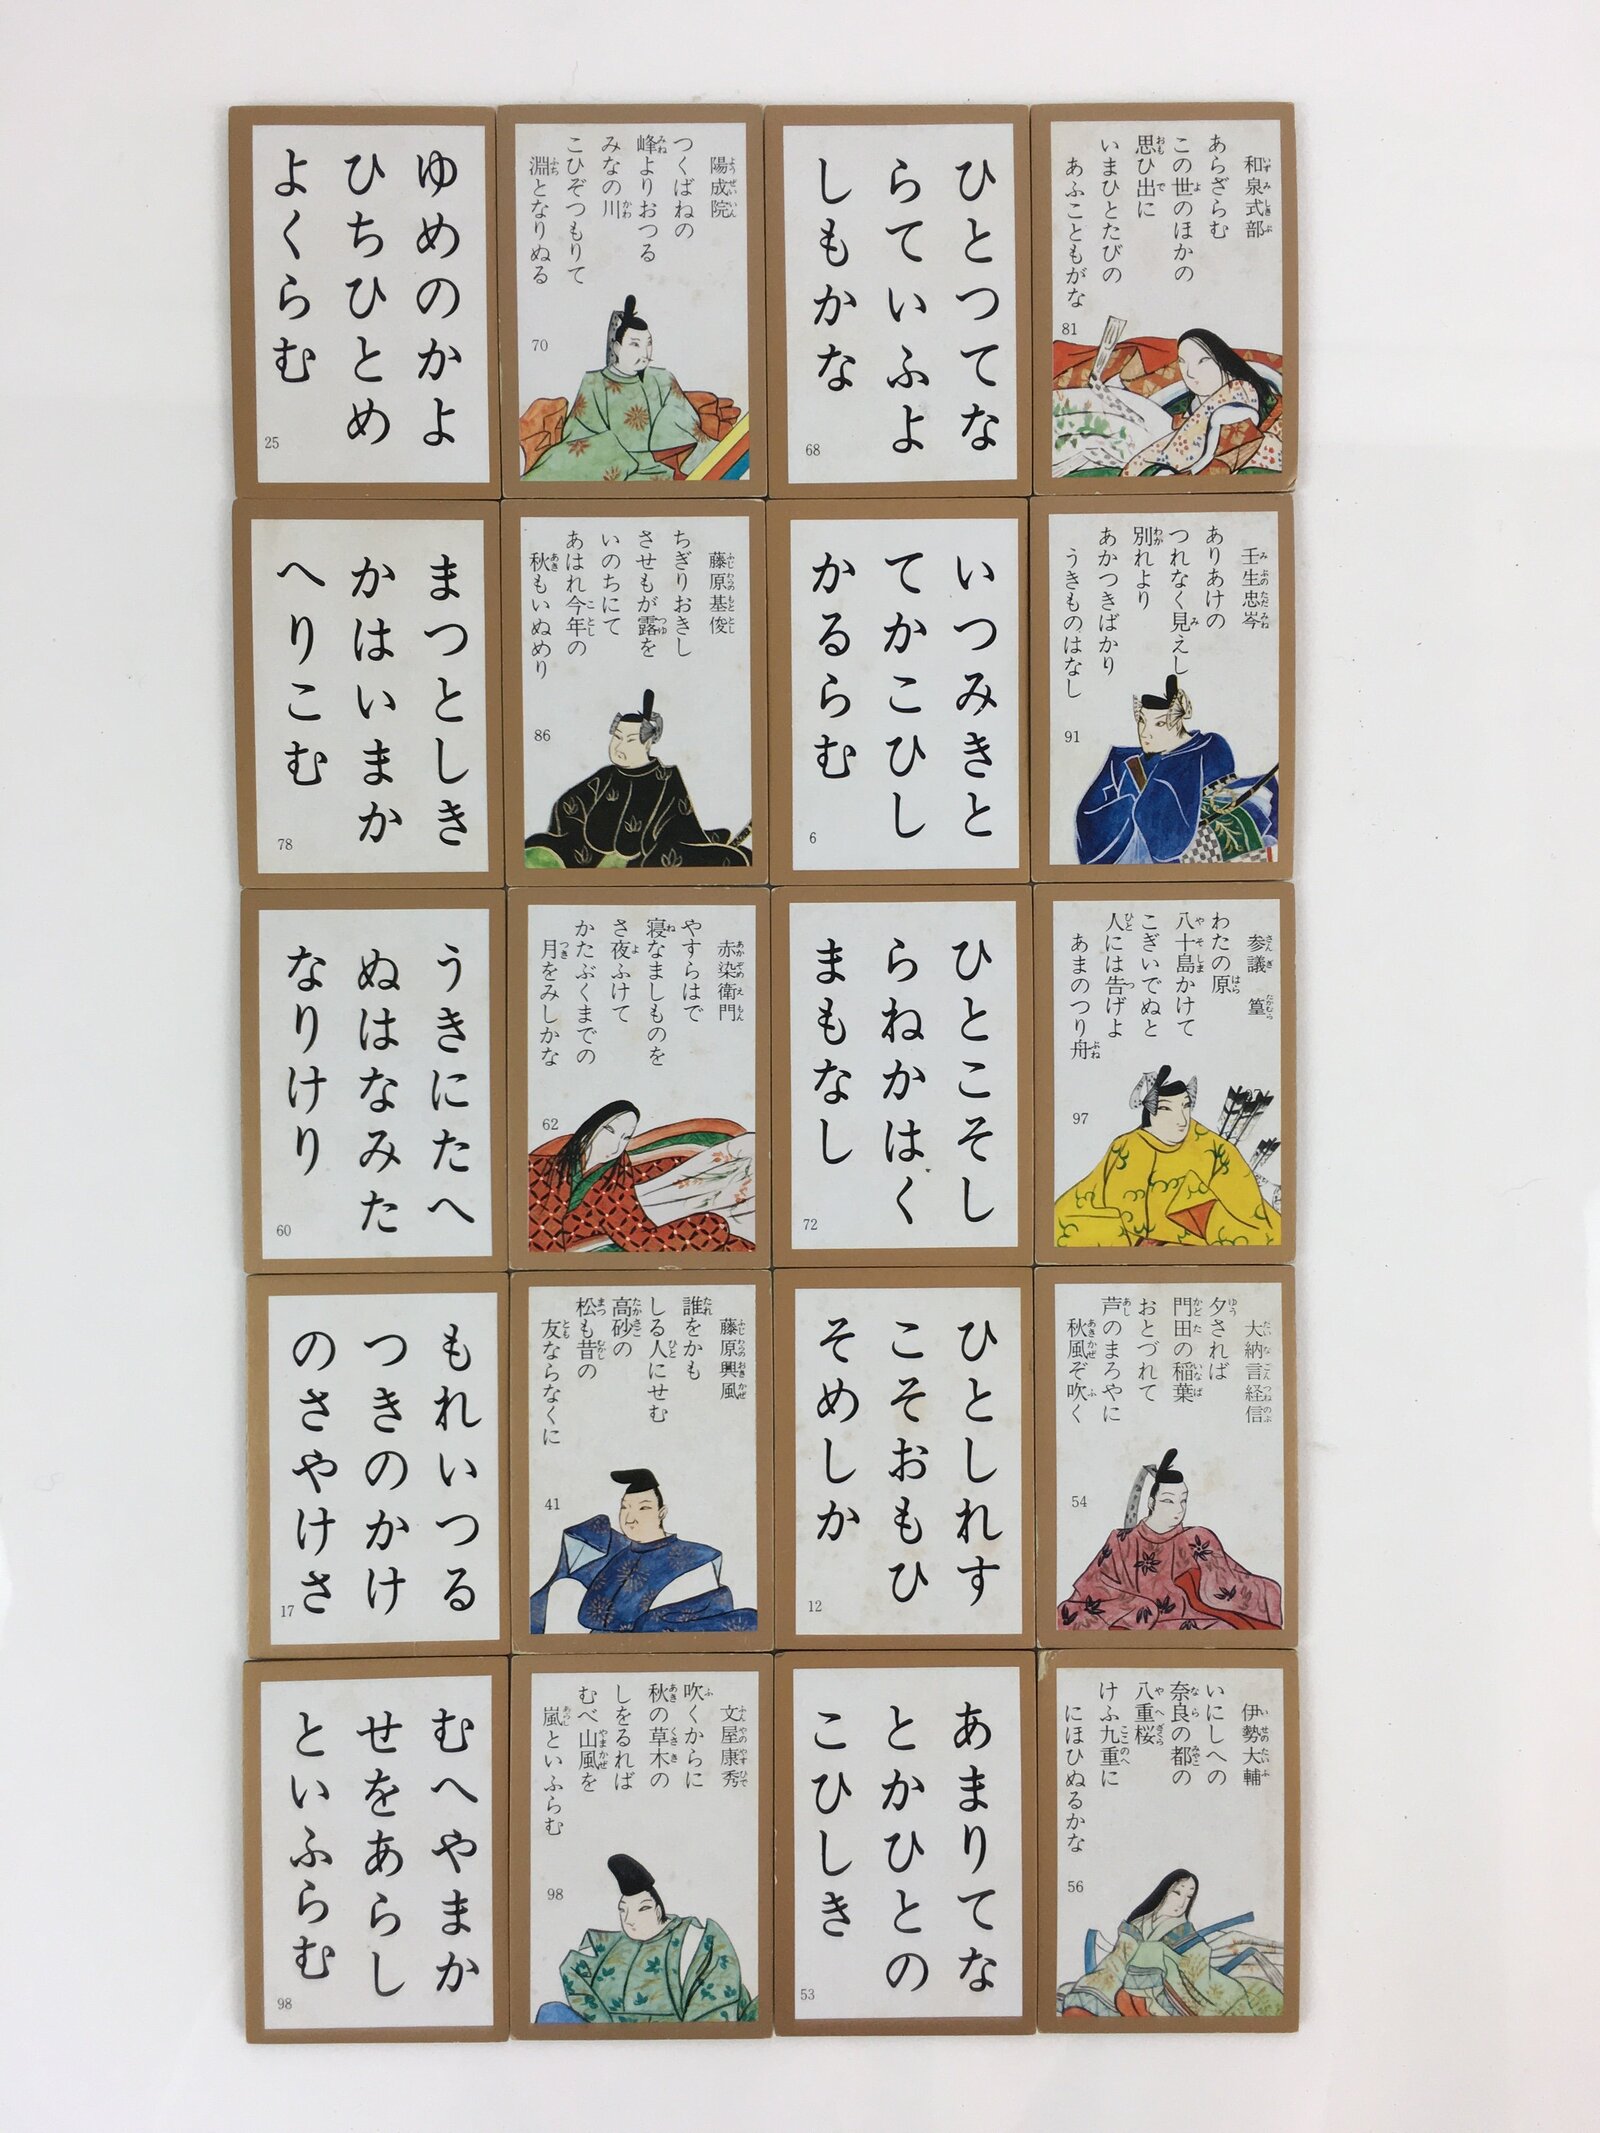 和泉式部
あらざらむ
この世のほかの
思ひ出に
いまひとたびの
あふこともがな
81
ひとつてな
らていふよ
しもかな
68
陽成院
つくばねの
峰よりおつる
みなの川
こひぞつもりて
淵となりぬる
70
ゆめのかよ
ひちひとめ
よくらむ
25
壬生忠岑
ありあけの
つれなく見えし
別れより
あかつきばかり
うきものはなし
91
いつみきと
てかこひし
かるらむ
6
藤原基俊
ちぎりおきし
させもが露を
いのちにて
あはれ今年の
秋もいぬめり
86
まつとしき
かはいまか
へりこむ
78
参議 篁
わたの原
八十島かけて
こぎいでぬと
人には告げよ
あまのつり舟
97
ひとこそし
らねかはく
まもなし
72
赤染衛門
やすらはで
寝なましものを
さ夜ふけて
かたぶくまでの
月をみしかな
62
うきにたへ
ぬはなみた
なりけり
60
大納言経信
夕されば
門田の稲葉
おとづれて
芦のまろやに
秋風ぞ吹く
54
ひとしれす
こそおもひ
そめしか
12
藤原興風
誰をかも
しる人にせむ
高砂の
松も昔の
友ならなくに
41
もれいつる
つきのかけ
のさやけさ
17
伊勢大輔
いにしへの
奈良の都の
八重桜
けふ九重に
にほひぬるかな
56
あまりてな
とかひとの
こひしき
53
文屋康秀
吹くからに
秋の草木の
しをるれば
むべ山風を
嵐といふらむ
98
むへやまか
せをあらし
といふらむ
98